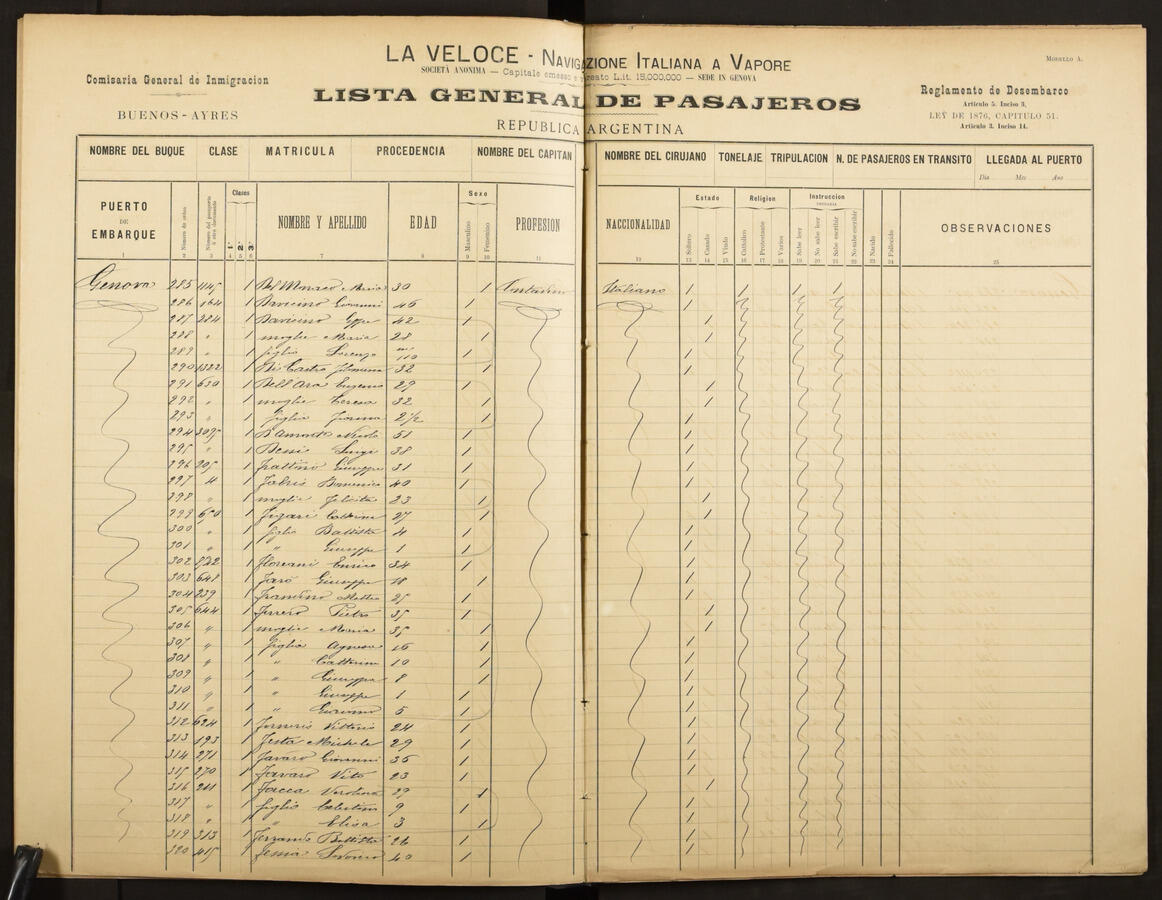 LA VELOCE - NAVIGAZIONE ITALIANA A VAPORE
SOCIETÀ ANONIMA — Capitale emesso e L.it. 15,000,000 — SEDE IN GENOVA
MODELLO A.
Comisaria General de Inmigracion
BUENOS-AYRES
LISTA GENERAL DE PASAJEROS
REPUBLICA ARGENTINA
Reglamento de Desembarco
Articulo 5. Inciso 3,
LEY DE 1876, CAPITULO 51.
Articulo 3. Inciso 14.
NOMBRE DEL BUQUE CLASE MATRICULA PROCEDENCIA NOMBRE DEL CAPITAN NOMBRE DEL CIRUJANO TONELAJE TRIPULACION N. DE PASAJEROS EN TRANSITO LLEGADA AL PUERTO
Dia Mes Año
PUERTO DE EMBARQUE Número de orden Clases 1.ª 2.ª 3.ª NOMBRE Y APELLIDO EDAD Sexo Masculino Femenino PROFESION NACCIONALIDAD Estado Soltero Casado Viudo Religion Catolico Protestante Varios Instruccion Sabe leer No sabe leer Sabe escribir No sabe escribir Nacido Fallecido OBSERVACIONES
1 2 3 4 5 6 7 8 9 10 11 12 13 14 15 16 17 18 19 20 21 22 23 24 25
Genova 285 1 Del Monaco Maria 30 1 Italiano 1 1 1 1
286 164 1 Giovanni 46 1
287 284 1 Gppe 42 1
288 " 1 moglie Maria 28 1
289 " 1 figlio Lorenzo 1
290 1322 1 Di Castro Filomena 32 1
291 630 1 Dell'Ara Eugenio 29 1
292 " 1 moglie Teresa 32 1
293 " 1 figlia 2 1/2 1
294 309 1 Nicola 51 1
295 " 1 Luigi 38 1
296 205 1 Frattino Giuseppe 31 1
297 4 1 Fabris Domenico 40 1
298 " 1 moglie Felicita 23 1
299 650 1 Catterina 27 1
300 " 1 figlio Battista 4 1
301 " 1 " Giuseppe 1 1
302 1 Floreani Enrico 34 1
303 648 1 Giuseppe 18 1
304 239 1 Matteo 25 1
305 644 1 Ferrero Pietro 35 1
306 " 1 moglie Maria 35 1
307 " 1 figlia 16 1
308 " 1 " Catterina 10 1
309 " 1 " Giuseppa 8 1
310 " 1 " Giuseppe 1 1
311 " 1 " 5 1
312 624 1 Forneris Vittorio 24 1
313 193 1 Festa Michele 29 1
314 271 1 Favaro Giovanni 36 1
315 270 1 Favaro Vito 23 1
316 241 1 Facca 29 1
317 " 1 figlio Celestino 9 1
318 " 1 " Elisa 3 1
319 313 1 Ferrando Battista 26 1
320 415 1 40 1